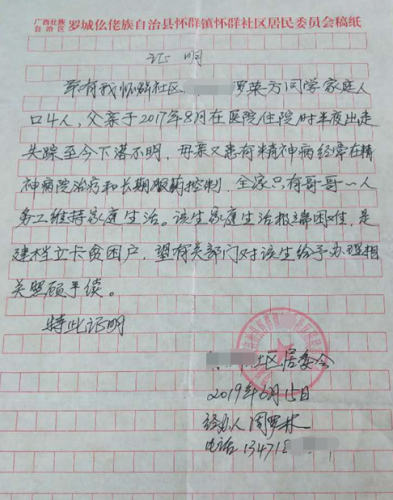 广西壮族自治区 罗城仫佬族自治县怀群镇怀群社区居民委员会稿纸
证明
兹有我怀群社区 罗荣方同学家庭人
口4人，父亲于2017年8月在医院住院时半夜出走
失踪至今下落不明，母亲又患有精神病经常在精
神病院治疗和长期服药控制，全家只有哥哥一人
务工维持家庭生活。该生家庭生活极端困难，是
建档立卡贫困户，望有关部门对该生给予办理相
关照顾手续。
特此证明
社区居委会
2019年6月15日
经办人 周
电话 134718